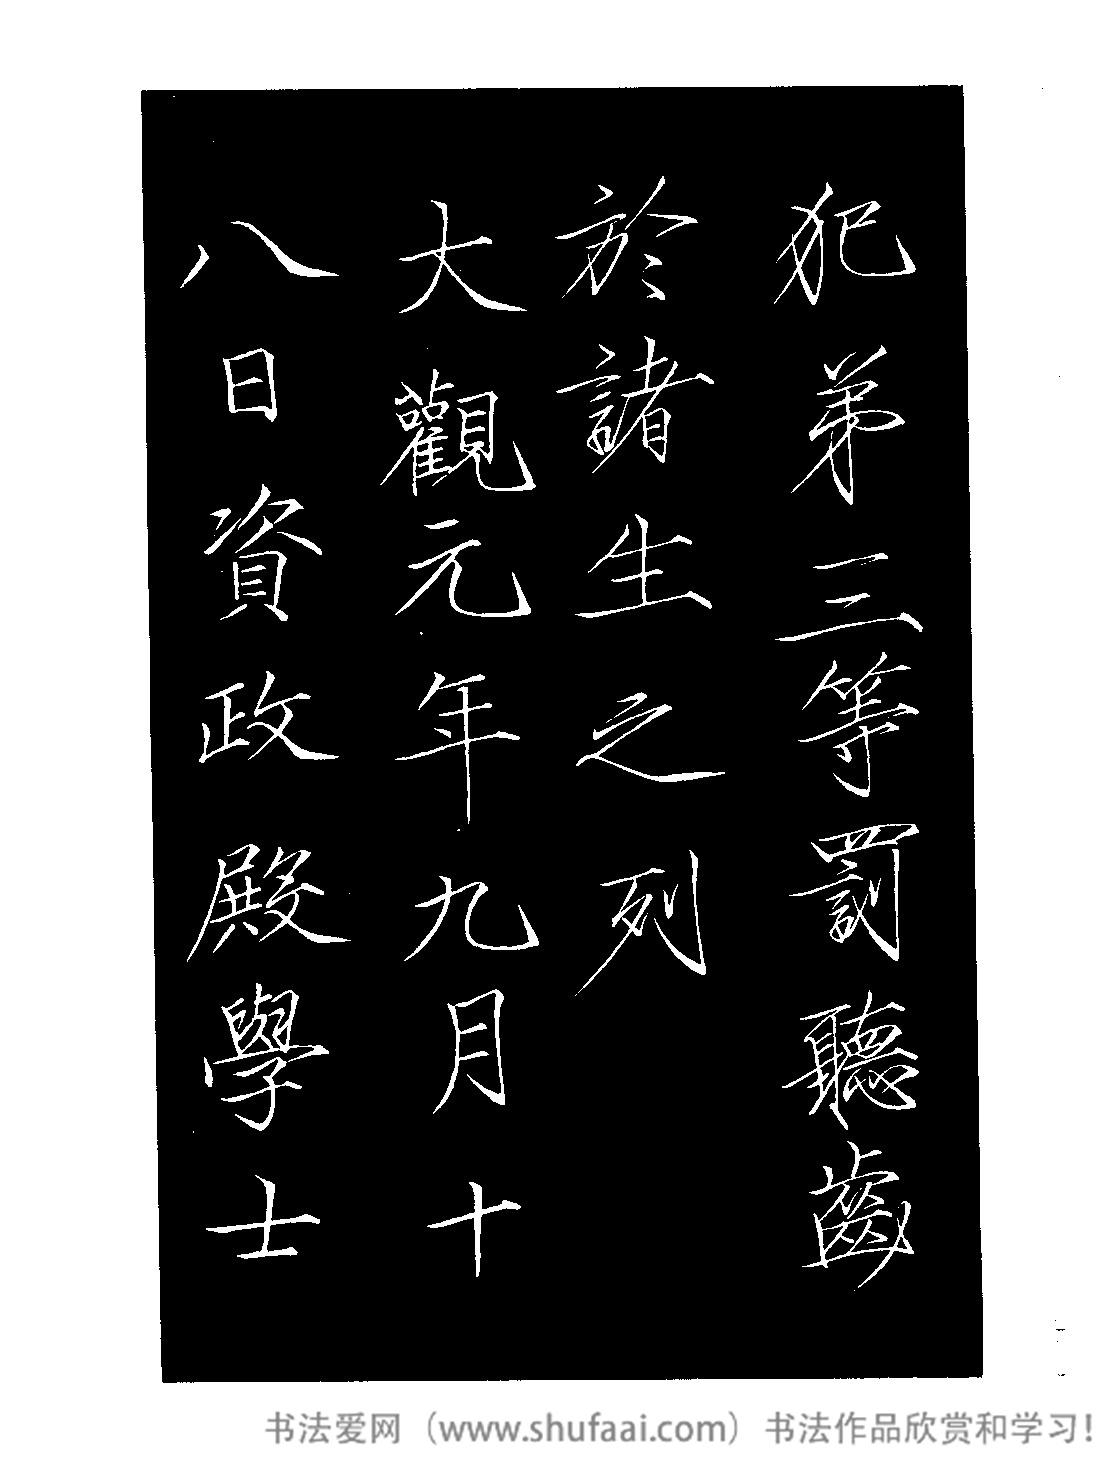 犯弟三等罰聽齒
於諸生之列
大觀元年九月十
八日資政殿學士
书法爱网（www.shufaai.com）书法作品欣赏和学习！